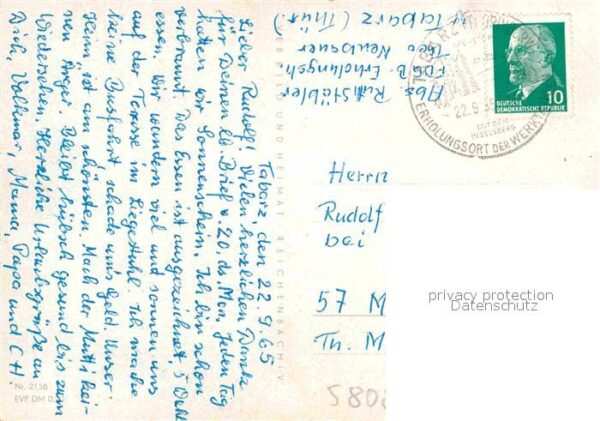 Tabarz, den 22.9.65
Lieber Rudolf! Vielen herzlichen Dank
für Deinen lb. Brief v. 20. ds. Mon. Jeden Tag
hatten wir Sonnenschein. Ich bin schon
verbrannt. Das Essen ist ausgezeichnet, 5 Wahl
essen. Wir wandern viel und sonnen uns
auf der Terasse im Liegestuhl. Ich mache
keine Busfahrt schade ums Geld. Unser
Heim ist am schönsten. Mach der Mutti kei-
nen Ärger. Bleibt hübsch gesund bis zum
Wiedersehen. Herzliche Urlaubsgrüße an
Dich, Volkmar, Mama, Papa und CH.
Nr. 2138
EVP DM 0,
BILD UND HEIMAT REICHENBACH i. V.
Abs. Ruth Stäbler
FDGB-Erholungsh.
Theo Neubauer
Tabarz (Thür.)
22.9.
MIT DEM
INSELSBERG
ERHOLUNGSORT DER WERKT
10
DEUTSCHE
DEMOKRATISCHE REPUBLIK
Herrn
Rudolf
bei
57 M
Th. M
privacy protection
Datenschutz
5808